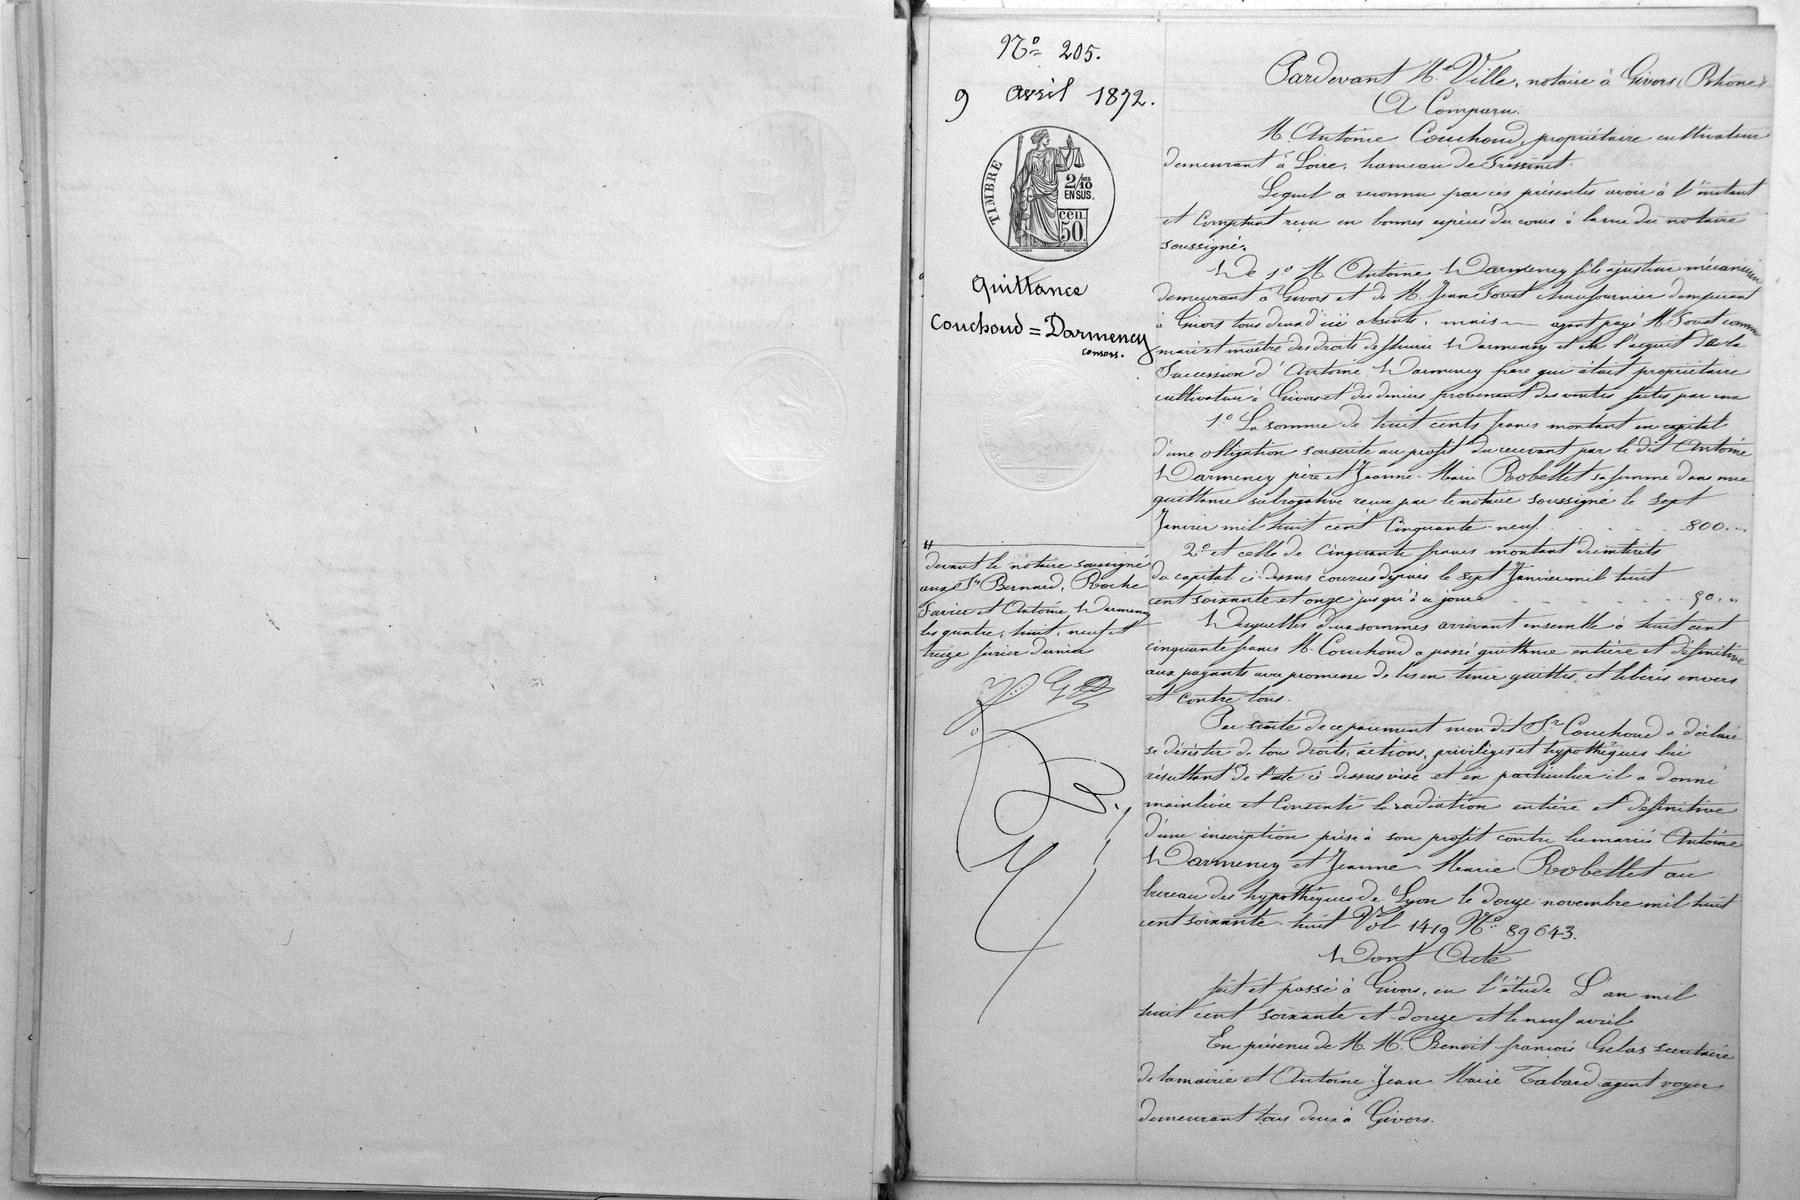 Nº 205.
9 avril 1872.
TIMBRE
2/10
EN SUS.
50 cen.
Quittance
Couchoud = Darmency
consors.
Pardevant Me Ville, notaire à Givors (Rhône)
A Comparu.
M. Antoine Couchoud, propriétaire cultivateur
demeurant à Loire, hameau de
Lequel a reconnu par ces présentes avoir à l'instant
et comptant reçu en bonnes espèces du cours à la vue du notaire
soussigné.
De 1º M Antoine Darmency fils ajusteur mécanicien
demeurant à Givors et de M. Jean chaufournier demeurant
à Givors tous deux d'ici absents, mais ayant payé M comme
mari et maître des droits de Darmency et en l'acquit de la
succession d'Antoine Darmency père qui était propriétaire
cultivateur à Givors et des deniers provenant des ventes faites par eux
1º La somme de huit cents francs montant en capital
d'une obligation souscrite au profit du recevant par le dit Antoine
Darmency père et Jeanne-Marie Robellet sa femme dans une
quittance subrogative reçue par le notaire soussigné le sept
Janvier mil huit cent cinquante-neuf 800. "
2º et celle de cinquante francs montant des intérêts
du capital ci-dessus courus depuis le sept Janvier mil huit
cent soixante et onze jusqu'à ce jour 50. "
Desquelles deux sommes arrivant ensemble à huit cent
cinquante francs M. Couchoud a passé quittance entière et définitive
aux payants avec promesse de les en tenir quittes et libérés envers
et contre tous.
Par suite de ce paiement mon dit Sr Couchoud a déclaré
se désister de tous droits, actions, privilèges et hypothèques lui
résultant de l'acte ci-dessus visé et en particulier il a donné
mainlevée et consenti la radiation entière et définitive
d'une inscription prise à son profit contre les mariés Antoine
Darmency et Jeanne-Marie Robellet au
bureau des hypothèques de Lyon le douze novembre mil huit
cent soixante-huit Vol 1419 Nº 89643.
Dont Acte
fait et passé à Givors, en l'étude L'an mil
huit cent soixante et douze et le neuf avril
En présence de M. M. Benoit françois Gelas secrétaire
de la mairie et Antoine Jean Marie Tabard agent voyer
demeurant tous deux à Givors.
devant le notaire soussigné
aux Srs Bernard, Roche
et Antoine Darmency
les quatre, huit, neuf et
treize février dernier